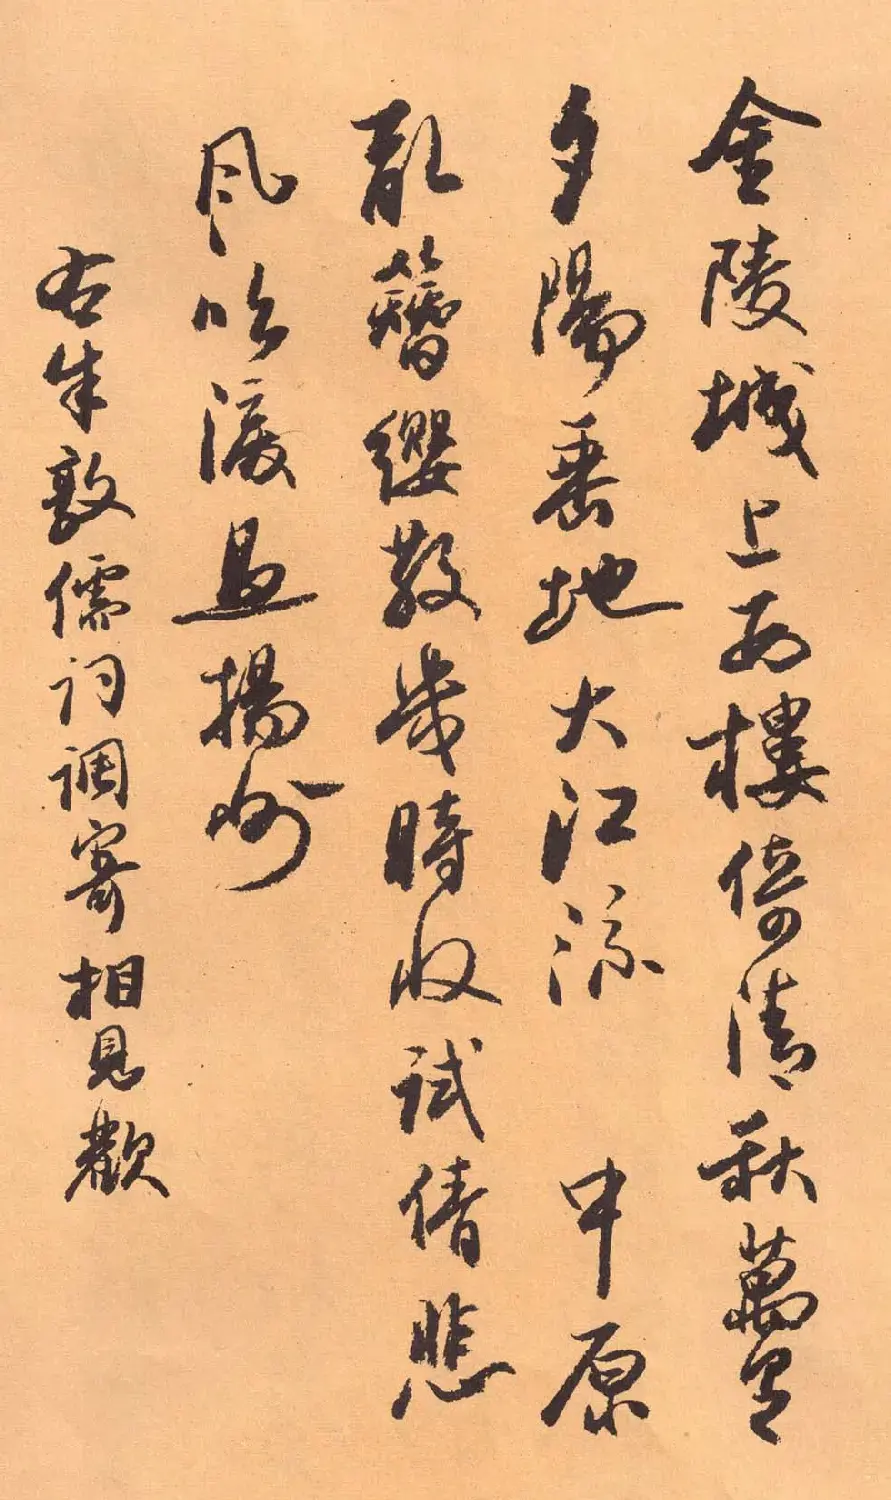 金陵城上西樓倚清秋萬里
夕陽垂地大江流 中原
亂簪纓散幾時收試倩悲
風吹淚過揚州
右朱敦儒詞調寄相見歡